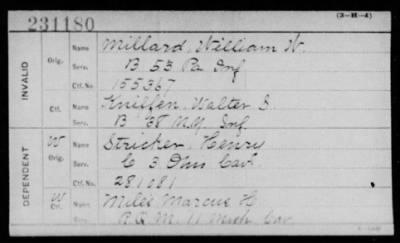 231180
(3-H-4)
INVALID
Orig.
Name Millard, William W.
Serv. B 53 Pa Inf
Ctf. No. 155367
Ctf.
Name Kniffen, Walter S.
Serv. B 38 N.Y. Inf.
DEPENDENT
W
Orig.
Name Stricker, Henry
Serv. C 3 Ohio Cav.
Ctf. No. 281081
W
Ctf.
Name Miles Marcus H
Serv. R.Q.M. 11 Mich Cav